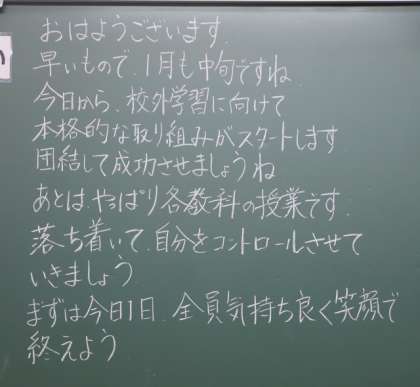 おはようございます.
早いもので、1月も中旬ですね.
今日から、校外学習に向けて
本格的な取り組みがスタートします
団結して成功させましょうね
あとは、やっぱり各教科の授業です.
落ち着いて、自分をコントロールさせて
いきましょう
まずは今日1日、全員気持ち良く笑顔で
終えよう